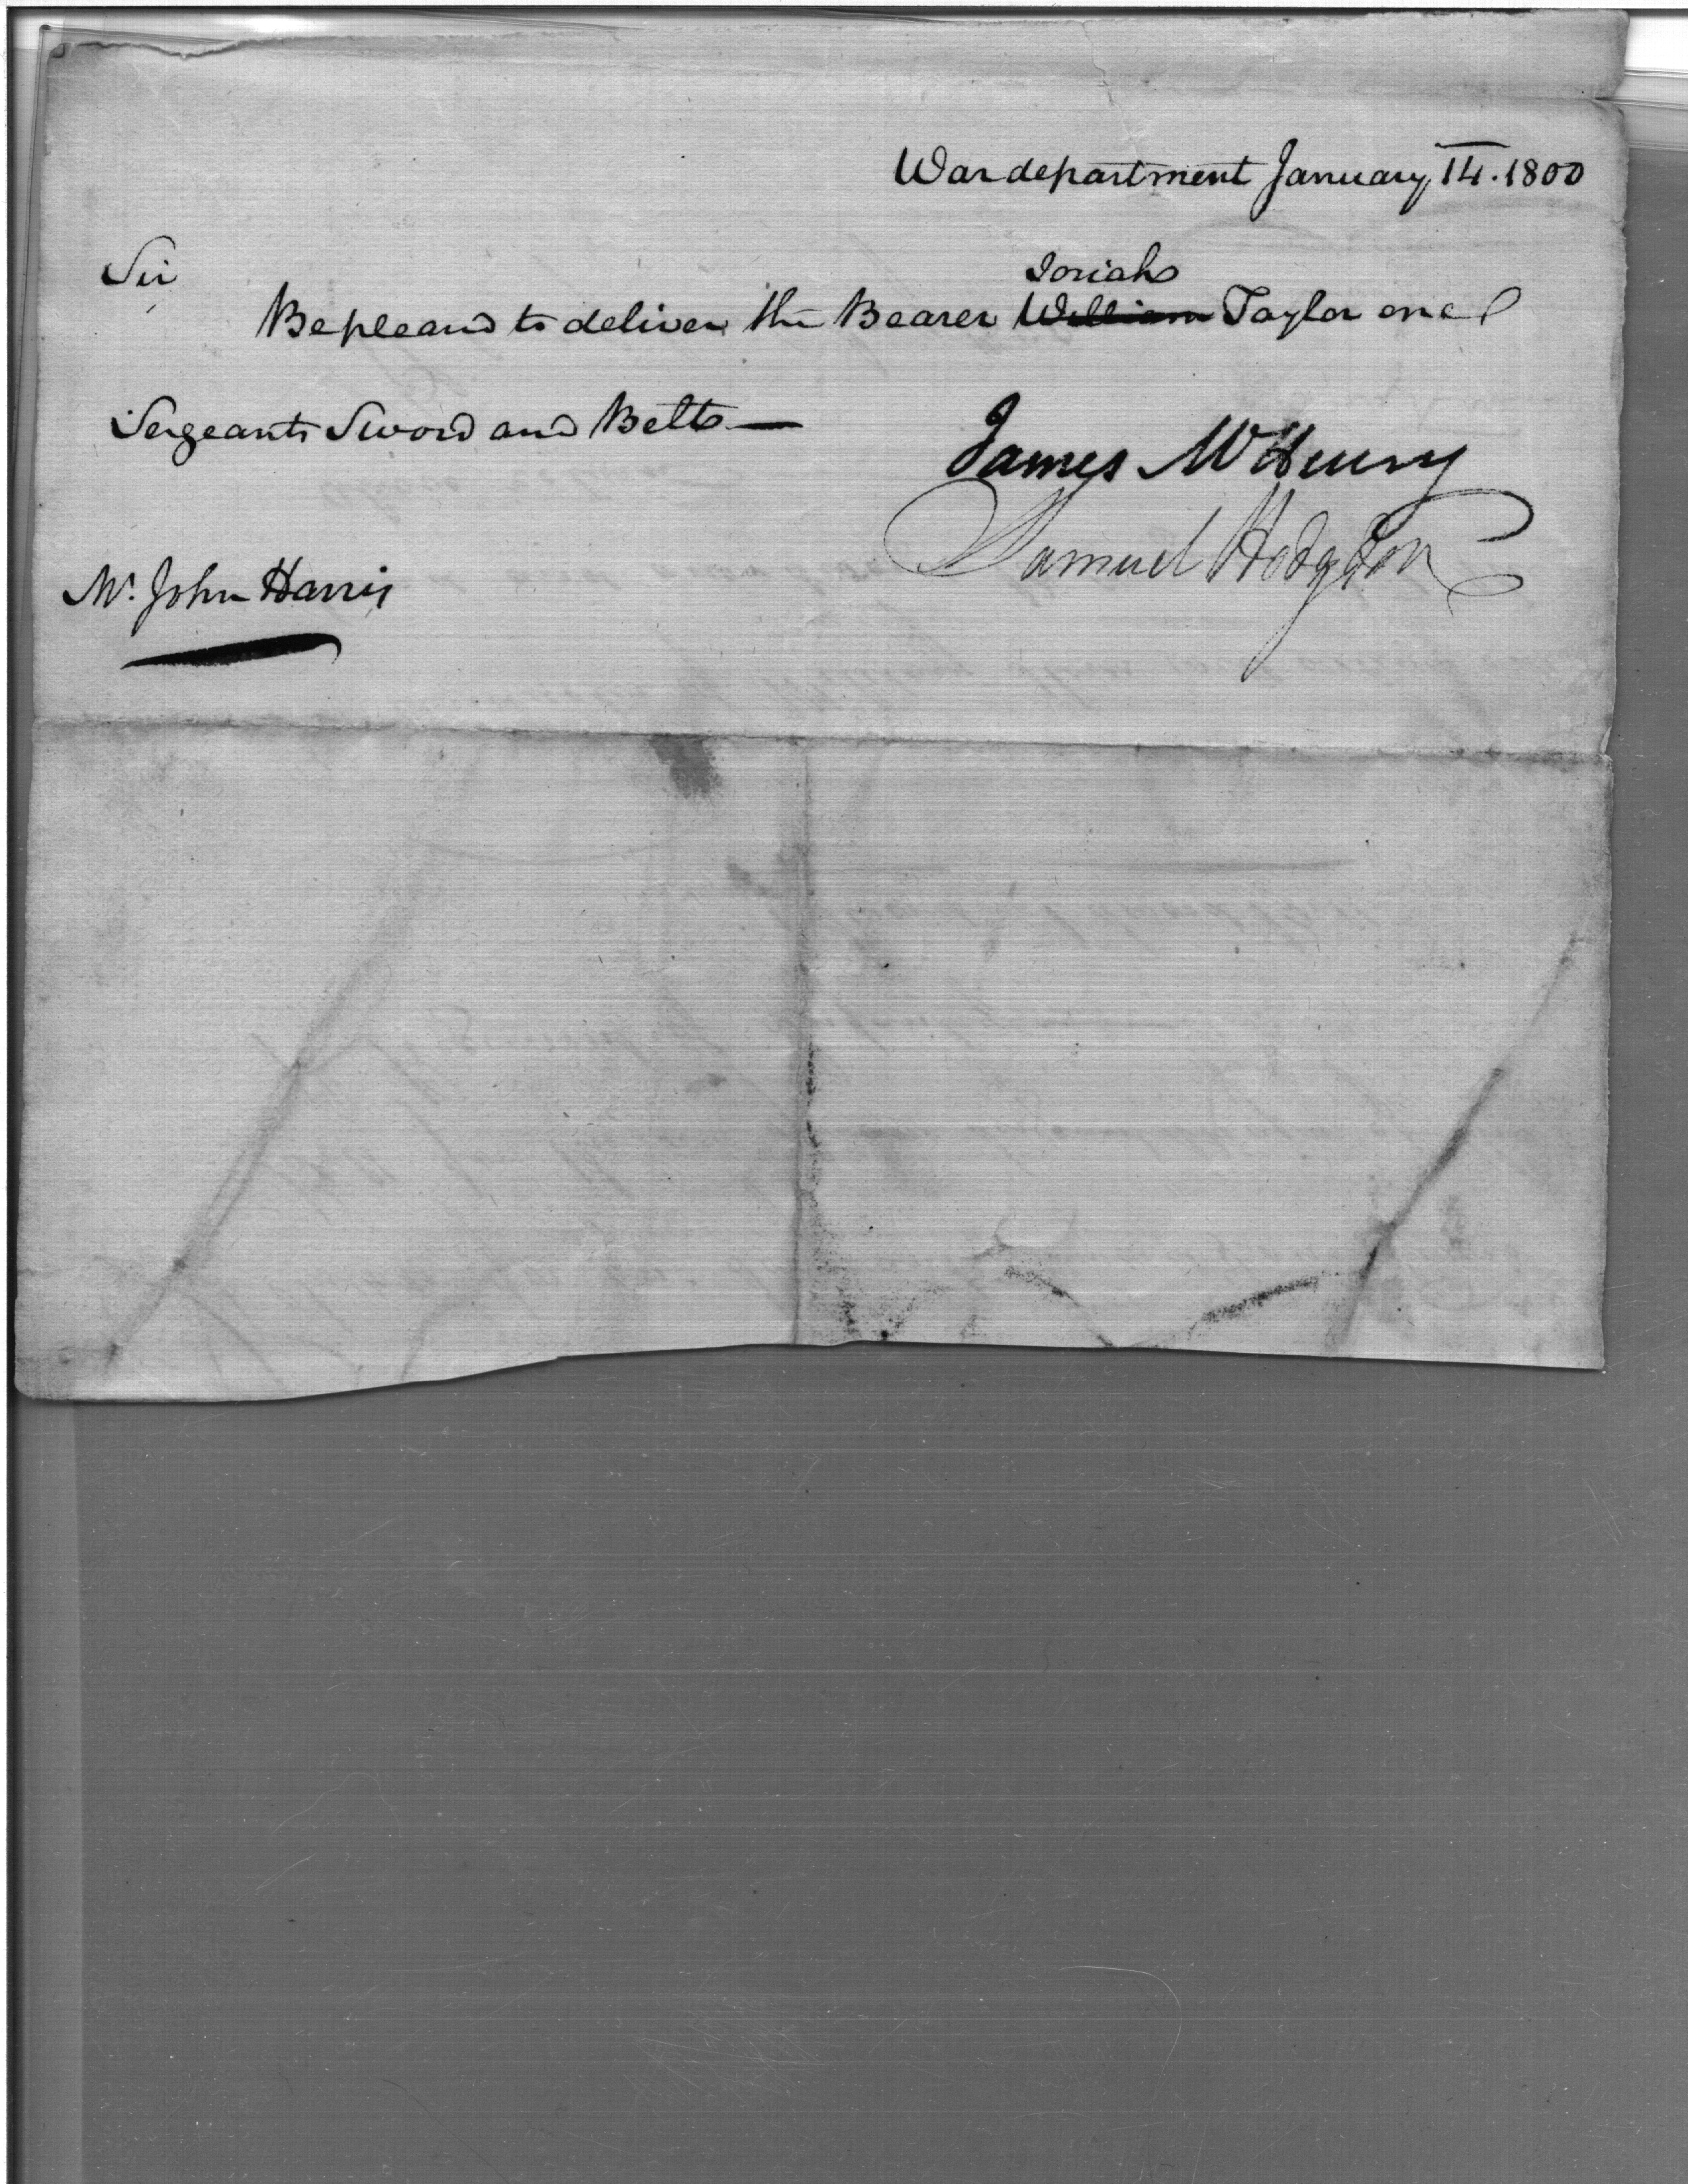 War department January 14. 1800
Sir
Josiah
Be pleased to deliver the Bearer William Taylor one
Sergeants Sword and Belt—
James McHenry
Samuel Hodgdon
Mr. John Harris